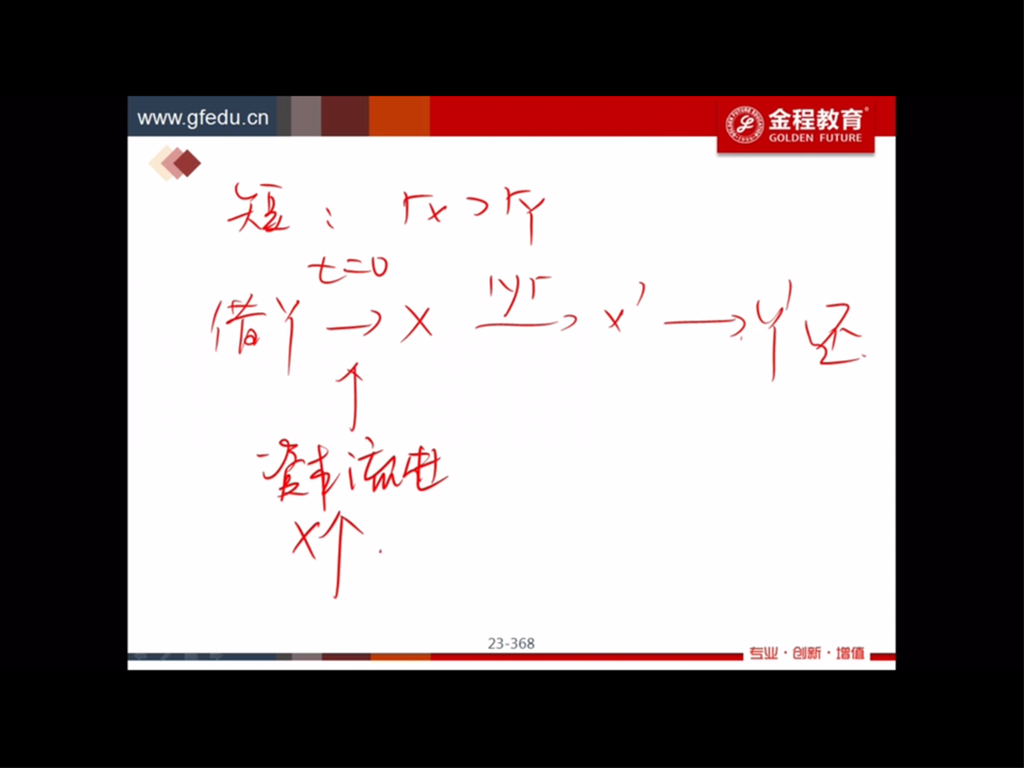 www.gfedu.cn
金程教育
GOLDEN FUTURE
短： rx > ry
t=0
借Y → X 1yr → X' → Y' 还
↑
资本流
X↑
23-368
专业·创新·增值